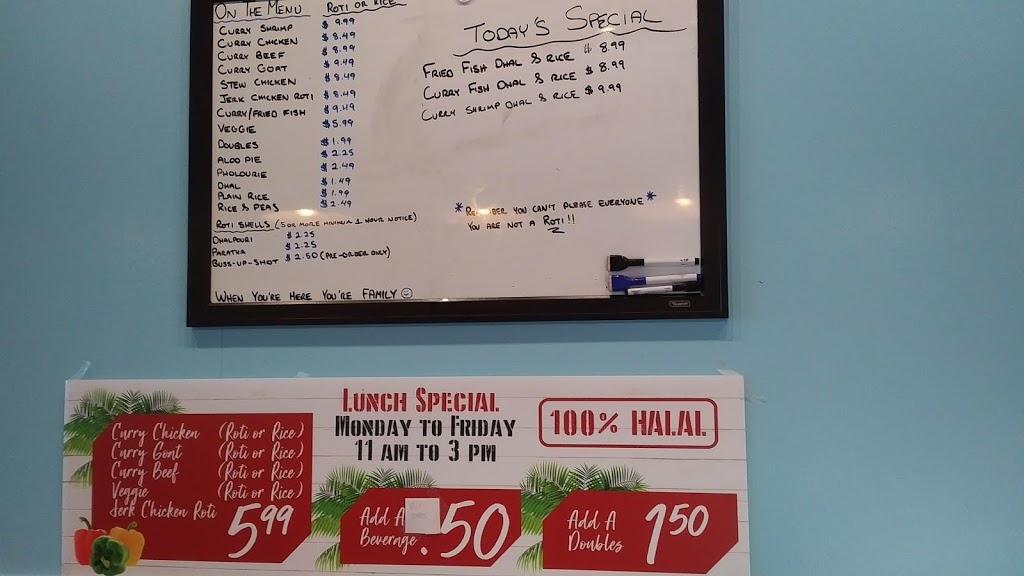 ON THE MENU ROTI OR RICE
CURRY SHRIMP $9.99
CURRY CHICKEN $8.49
CURRY BEEF $8.99
CURRY GOAT $9.49
STEW CHICKEN $8.49
JERK CHICKEN ROTI $8.49
CURRY/FRIED FISH $9.49
VEGGIE $5.99
DOUBLES $1.99
ALOO PIE $2.25
PHOLOURIE $2.49
DHAL $1.49
PLAIN RICE $1.99
RICE & PEAS $2.49
ROTI SHELLS (5 OR MORE MINIMUM 1 HOUR NOTICE)
DHALPOURI $2.25
PARATHA $2.25
BUSS-UP-SHOT $2.50 (PRE-ORDER ONLY)
WHEN YOU'RE HERE YOU'RE FAMILY ☺
TODAY'S SPECIAL
FRIED FISH DHAL & RICE $8.99
CURRY FISH DHAL & RICE $8.99
CURRY SHRIMP DHAL & RICE $9.99
*REMEMBER YOU CAN'T PLEASE EVERYONE*
YOU ARE NOT A ROTI!!
LUNCH SPECIAL
MONDAY TO FRIDAY
11 AM TO 3 PM
100% HALAL
Curry Chicken (Roti or Rice)
Curry Goat (Roti or Rice)
Curry Beef (Roti or Rice)
Veggie (Roti or Rice)
Jerk Chicken Roti
5.99
Add A
Beverage .50
Add A
Doubles 1.50